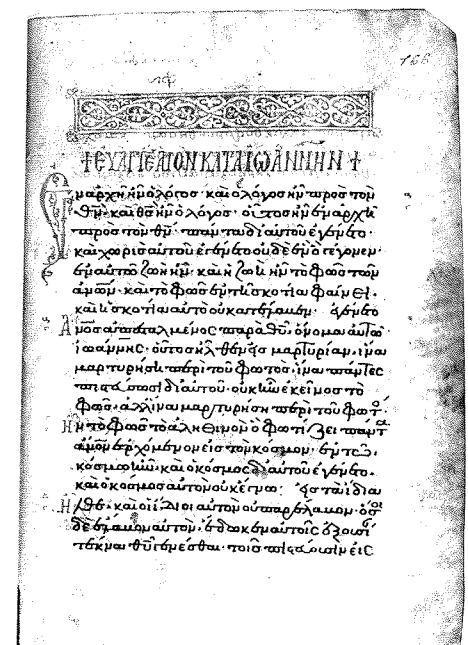 166
+ ΕΥΑΓΓΕΛΙΟΝ ΚΑΤΑ ΙΩΑΝΝΗΝ +
Ἐν ἀρχῆ ἦν ὁ λόγος· καὶ ὁ λόγος ἦν πρὸς τὸν
θν̅· καὶ θς̅ ἦν ὁ λόγος· οὗτος ἦν ἐν ἀρχῆ
πρὸς τὸν θν̅· πάντα δι αὐτοῦ ἐγένετο·
καὶ χωρὶς αὐτοῦ ἐγένετο οὐδὲ ἓν ὃ γέγονεν·
ἐν αὐτῶ ζωὴ ἦν· καὶ ἡ ζωὴ ἦν τὸ φῶς τῶν
ἀνων̅· καὶ τὸ φῶς ἐν τῆ σκοτία φαίνει·
καὶ ἡ σκοτία αὐτὸ οὐ κατέλαβεν· ἐγένετο
ἀνος̅ ἀπεσταλμένος παρὰ θυ̅· ὄνομα αὐτῶ
ἰωάννης· οὗτος ἦλθεν εἰς μαρτυρίαν· ἵνα
μαρτυρήση περὶ τοῦ φωτός· ἵνα πάντες
πιστεύσωσι δι αὐτοῦ· οὐκ ἦν ἐκεῖνος τὸ
φῶς· ἀλλ ἵνα μαρτυρήση περὶ τοῦ φωτ
Ἦν τὸ φῶς τὸ ἀληθινὸν ὃ φωτίζει πάντα
ἀνον̅ ἐρχόμενον εἰς τὸν κόσμον· ἐν τῶ
κόσμω ἦν· καὶ ὁ κόσμος δι αὐτοῦ ἐγένετο·
καὶ ὁ κόσμος αὐτὸν οὐκ ἔγνω· εἰς τὰ ἴδια
Ἦλθε· καὶ οἱ ἴδιοι αὐτὸν οὐ παρέλαβον· ὅσοι
δὲ ἔλαβον αὐτὸν· ἔδωκεν αὐτοῖς ἐξουσί
τέκνα θυ̅ γενέσθαι· τοῖς πιστεύουσιν εἰς